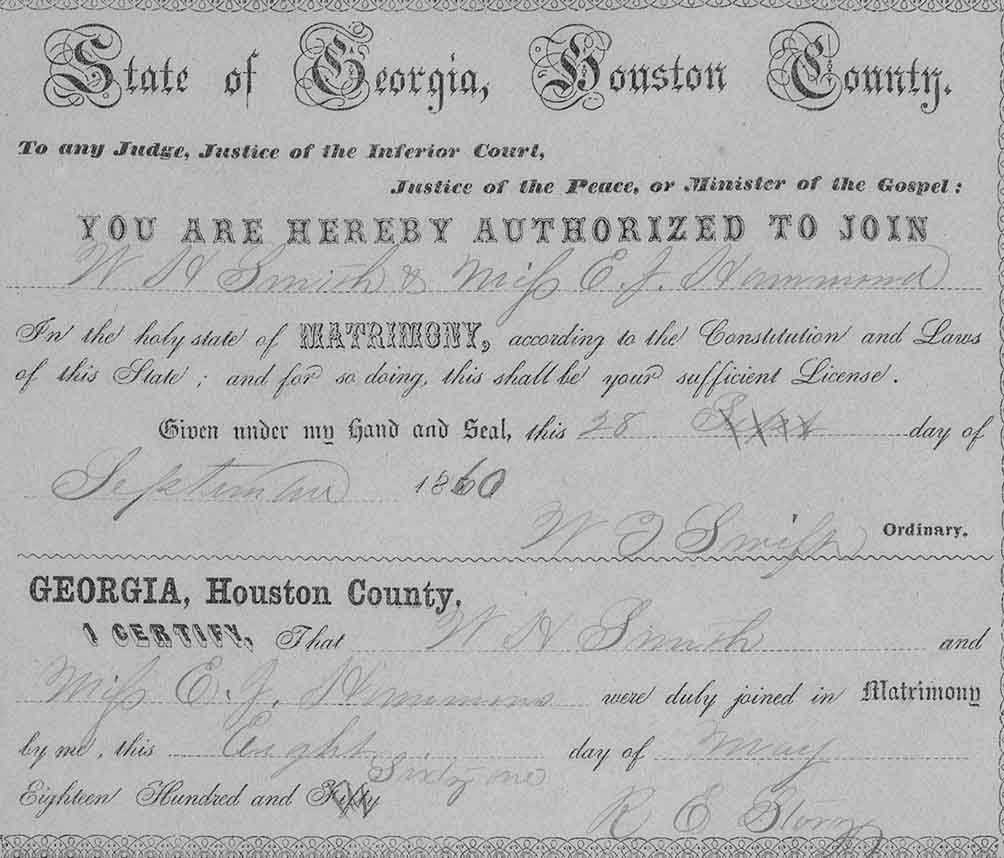 State of Georgia, Houston County.
To any Judge, Justice of the Inferior Court,
Justice of the Peace, or Minister of the Gospel:
YOU ARE HEREBY AUTHORIZED TO JOIN
W H Smith & Miss E. J. Hammond
In the holy state of MATRIMONY, according to the Constitution and Laws
of this State; and for so doing, this shall be your sufficient License.
Given under my Hand and Seal, this 28 day of
September 1860
W T Swift Ordinary.
GEORGIA, Houston County.
I CERTIFY, That W H Smith and
Miss E. J. Hammons were duly joined in Matrimony
by me, this Eight day of May
Sixty one
Eighteen Hundred and Fifty
R E Story